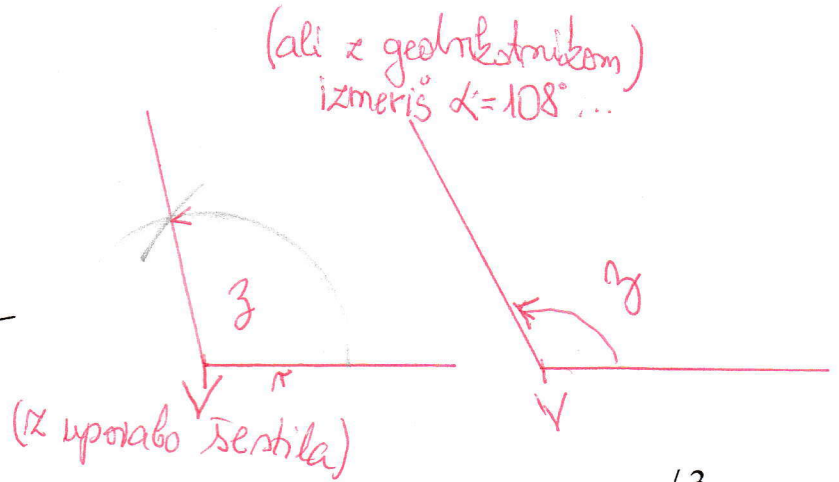 (ali z geotrikotnikom)
izmeriš α=108° ...
z
r
V
(z uporabo šestila)
γ
V
/ 3